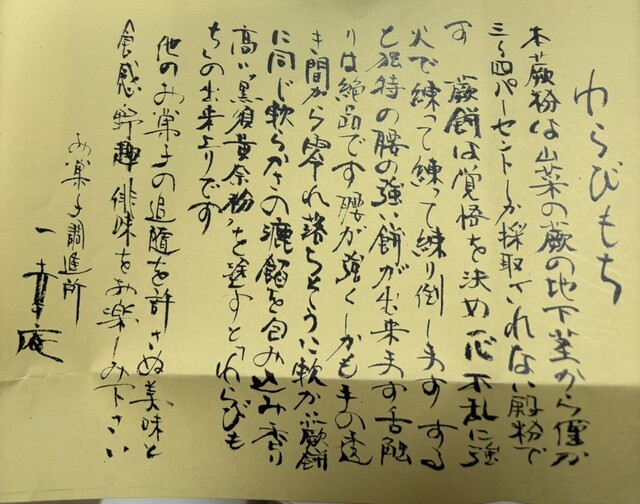 わらびもち
本蕨粉は山菜の蕨の地下茎から僅か
三〜四パーセントしか採取されない殿粉で
す 蕨餅は覚悟を決め一心不乱に強
火で練って練って練り倒します する
と独特の腰の強い餅が出来ます 舌触
りは絶品です 腰が強くしかも手の透
き間から零れ落ちそうに軟かい蕨餅
に同じ軟らかさの漉餡を包み込み香り
高い「黒須黄奈粉」を塗すと「わらびも
ち」の出来上りです
他のお菓子の追随を許さぬ美味と
食感 野趣 俳味をお楽しみ下さい
お菓子調進所
一幸庵